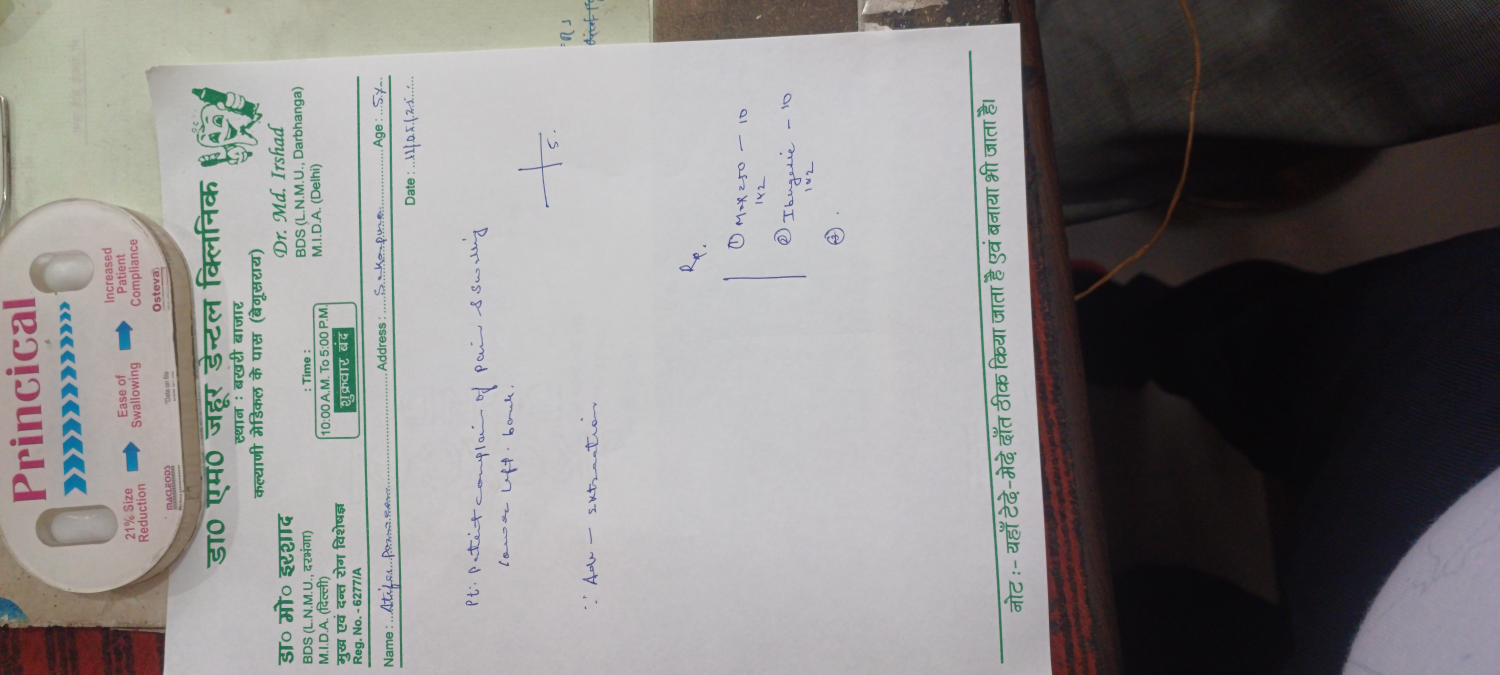 Princical
21% Size Reduction
Ease of Swallowing
Increased Patient Compliance
MACLEODS
Osteva
डा० एम० जहूर डेन्टल क्लिनिक
स्थान : बखरी बाजार
कल्याणी मेडिकल के पास (बेगूसराय)
डा० मो० इरशाद
BDS (L.N.M.U., दरभंगा)
M.I.D.A. (दिल्ली)
मुख एवं दन्त रोग विशेषज्ञ
Reg. No. - 6277/A
: Time :
10:00 A.M. To 5:00 P.M.
शुक्रवार बंद
Dr. Md. Irshad
BDS (L.N.M.U., Darbhanga)
M.I.D.A. (Delhi)
Name : Address : Age : 5y
Date :
Pt: patient complain of pain & swelling
lower left. back.
5.
∴ Adv — extraction
Rp.
① Mox 250 — 10
1x2
② Ibugesic — 10
1x2
③ .
नोट :- यहाँ टेढ़े-मेढ़े दाँत ठीक किया जाता है एवं बनाया भी जाता है।